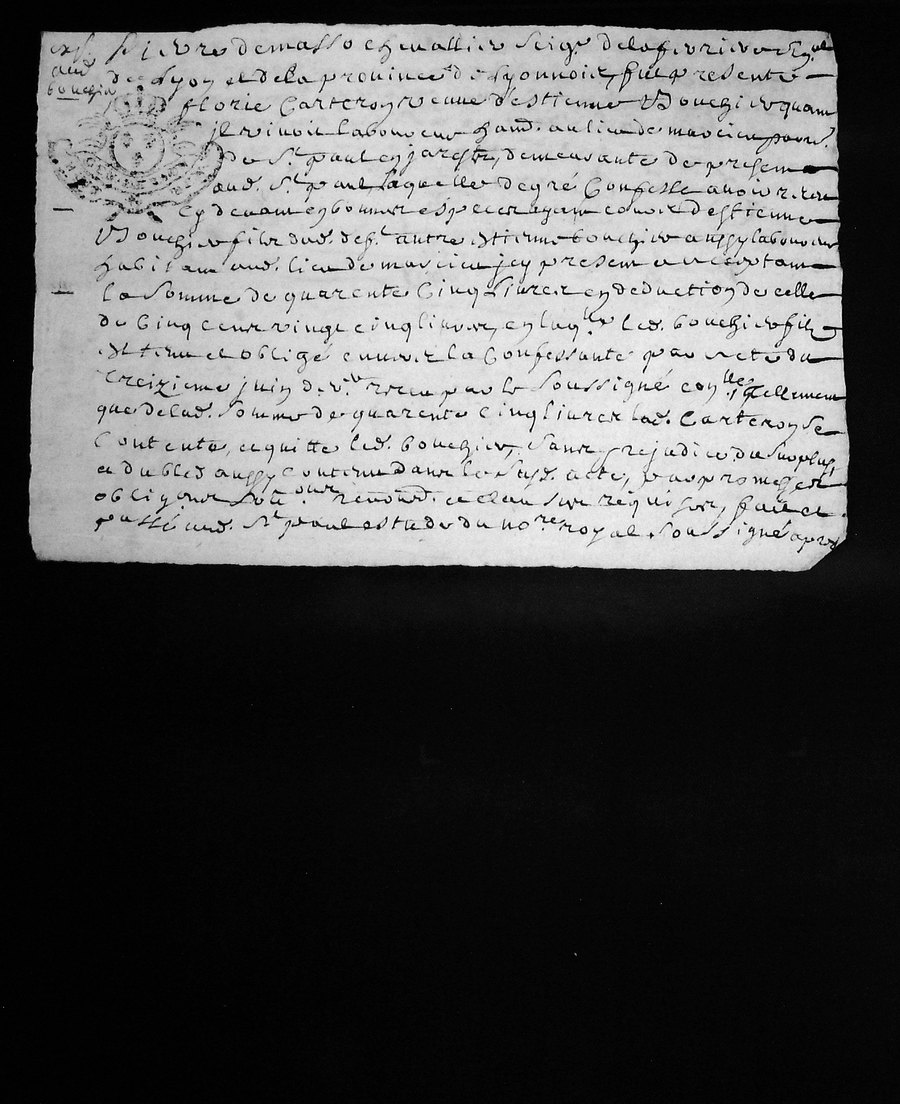 exp.
aud.
bouchiu
Pierre de masso chevallier seigr. de la ferriere Senal
de Lyon et de la province de Lyonnois, fut presente
florie Carteron veuve d'estienne Bouchier quand
il vivoit laboureur hand. au lieu de marcieu parr.
de St. paul en jarestz, demeurante de present
aud. St. paul laquelle de gré Confesse avoir receu
cy devant en bonnes especes ayant cours d'estienne
Bouchier fils dud. deft. autre estienne bouchier aussy laboureur
habitant aud. lieu de marcieu icy present acceptant
la Somme de quarente Cinq Livres en deduction de celle
de Cinq cens vingt cinq livres, en laqlle led. bouchier fils
est tenu et obligé envers la Confessante par acte du
treizieme juin der. receu par le Soussigné conlle tellement
que de lad. Somme de quarente Cinq livres lad. Carteron se
Contente, et quitte led. bouchier, Sans prejudice du surplus
et du bled aussy contenu dans le susd. acte, par promesses
obligaons renond. et clau ses requises, fait et
passé aud. St. paul estude du nore royal soussigné apres